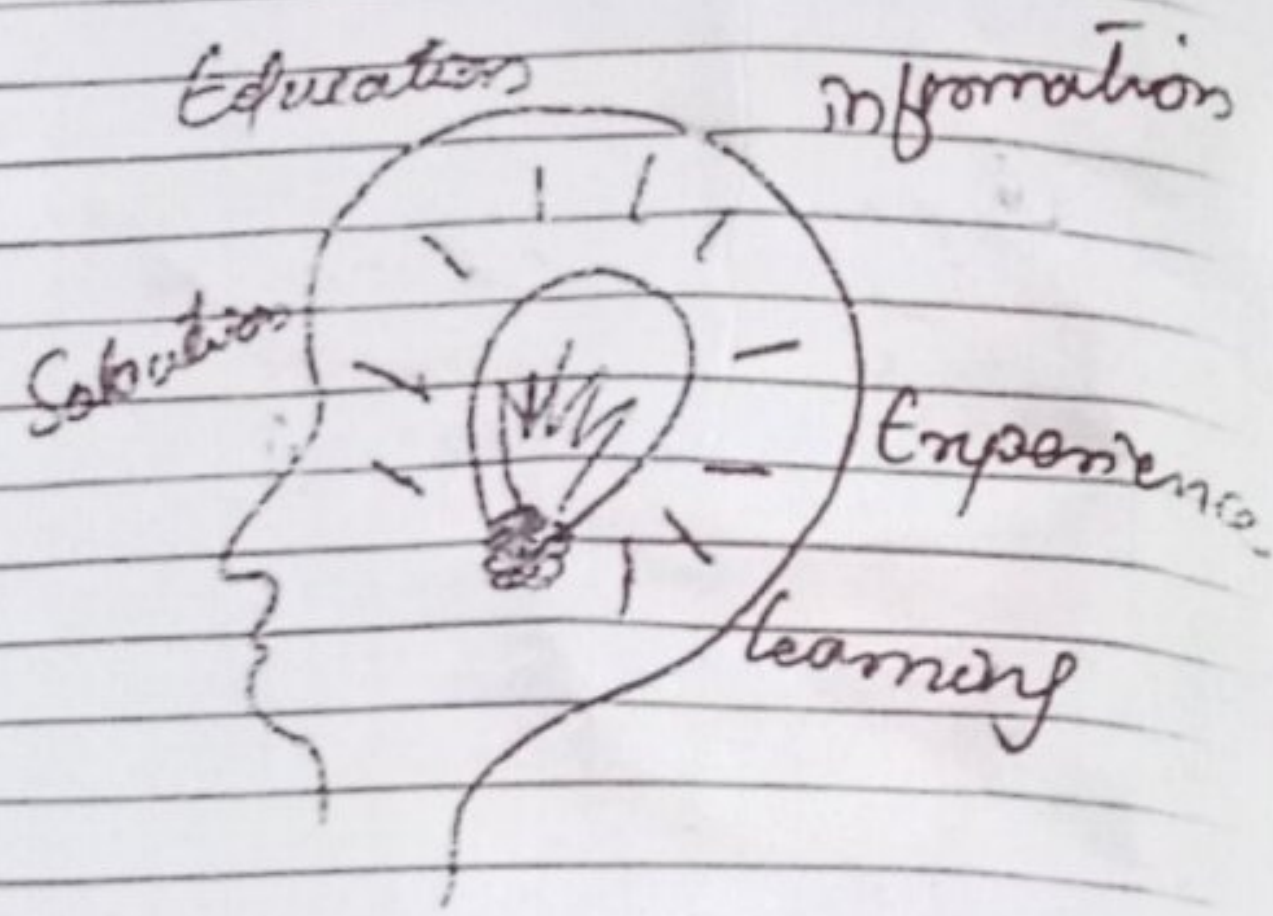 Education
information
Solution
Experience
learning